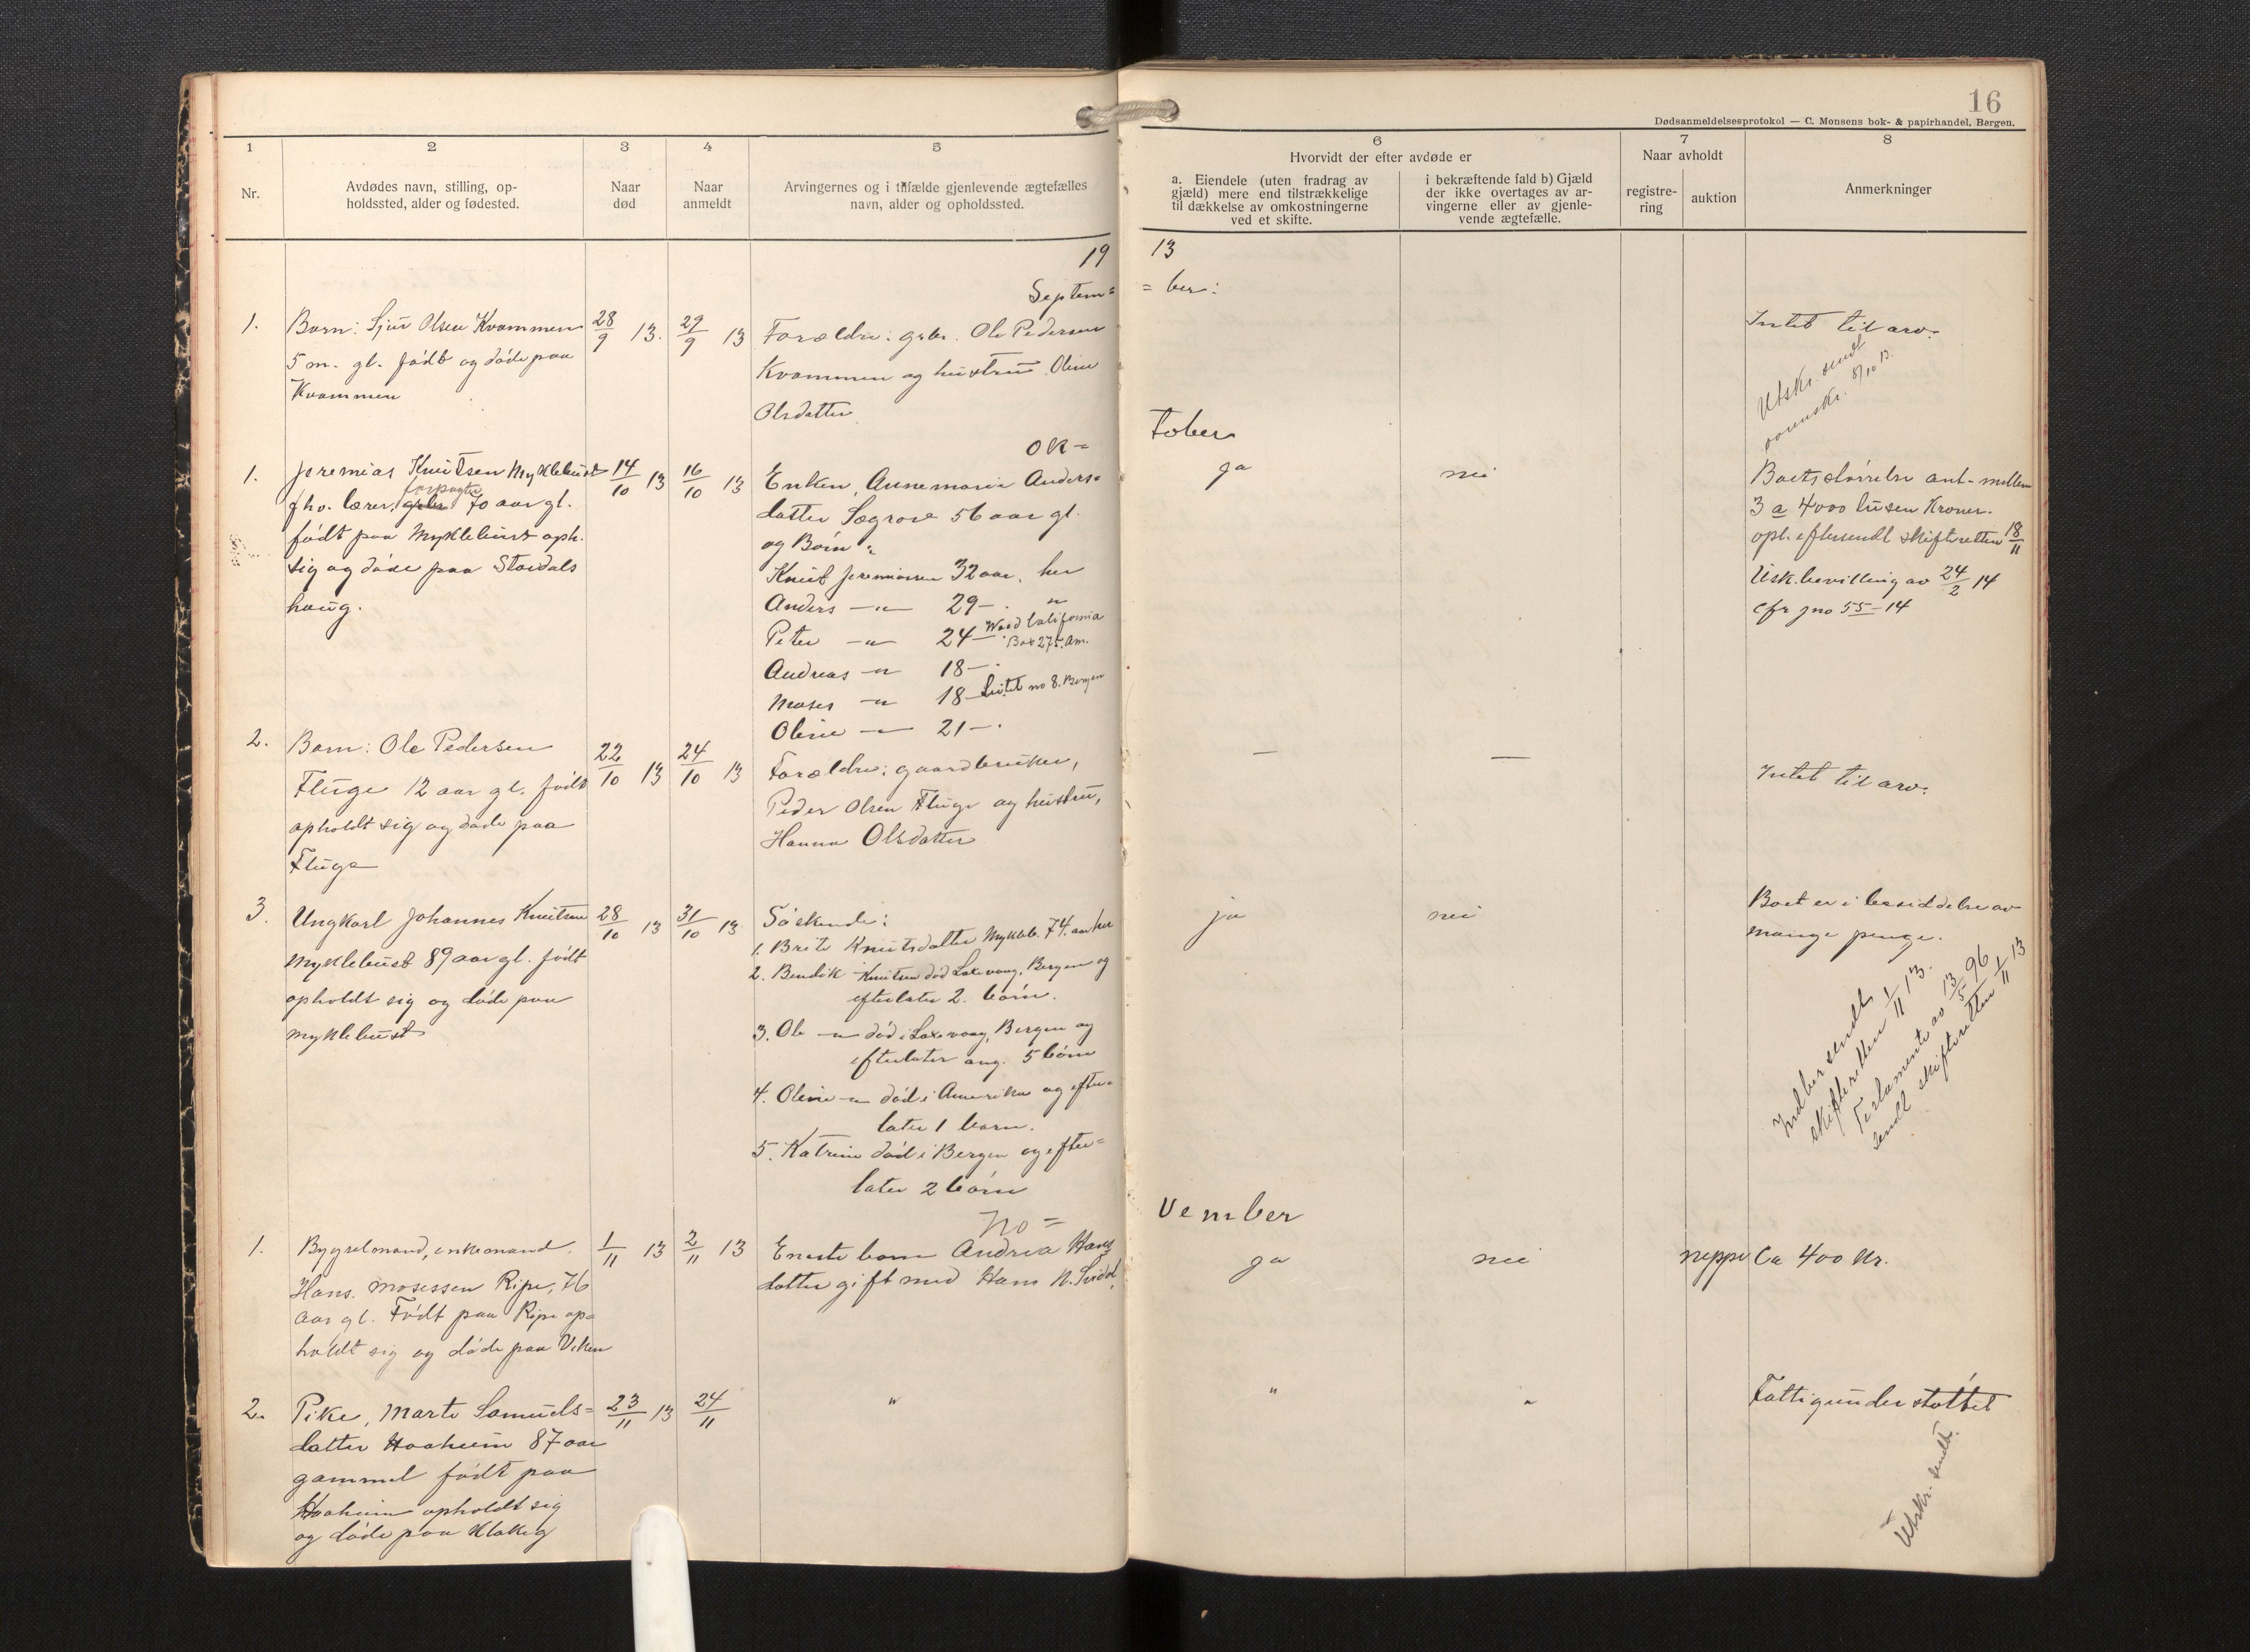 16
Dødsanmeldelsesprotokol — C. Monsens bok- & papirhandel, Bergen.
1
Nr.
2
Avdødes navn, stilling, op-
holdssted, alder og fødested.
3
Naar
død
4
Naar
anmeldt
5
Arvingernes og i tilfælde gjenlevende ægtefælles
navn, alder og opholdssted.
6
Hvorvidt der efter avdøde er
a. Eiendele (uten fradrag av
gjæld) mere end tilstrækkelige
til dækkelse av omkostningerne
ved et skifte.
i bekræftende fald b) Gjæld
der ikke overtages av ar-
vingerne eller av gjenle-
vende ægtefælle.
7
Naar avholdt
registre-
ring
auktion
8
Anmerkninger
1913
Septem=
=ber:
1.
Barn: Sjur Olsen Kvammen
5 m. gl. født og døde paa
Kvammen
28/9 13.
29/9 13
Forældre: grbr. Ole Pedersen
Kvammen og hustru Oline
Olsdatter
Intet til arv.
Utskr. sendt
8/10 13
Ok=
tober
1.
Jeremias Knutsen Myklebust
fhv. lærer, 70 aar gl.
født paa Myklebust oph.
sig og døde paa Stordals
haug.
14/10 13
16/10 13
Enken, Annemarie Anders=
datter Søgrov 56 aar gl.
og Børn:
Knut Jeremiassen 32 aar, her
Anders —"— 29 —. "
Peter —"— 24 — Wood California
Box 275. Am.
Andreas —"— 18 —.
Moses —"— 18 — no 8. Bergen
Oline —"— 21 —.
ja
nei
Boets størrelse ant. mellem
3 a 4000 tusen Kroner.
opl. eftersendt skifteretten 18/11
Usk.bevilling av 24/2 14
cfr jno 55-14
2.
Barn: Ole Pedersen
Fluge 12 aar gl. født
opholdt sig og døde paa
Fluge
22/10 13
24/10 13
Forældre: gaardbruker,
Peder Olsen Fluge og hustru,
Hanna Olsdatter
—
—
Intet til arv.
3.
Ungkarl Johannes Knutsen
Myklebust 89 aar gl. født
opholdt sig og døde paa
Myklebust
28/10 13
31/10 13
Søskende:
1. Brite Knutsdatter Mykleb. 74. aar her
2. Bendik Knutsen død Laxevaag, Bergen og
efterlater 2. børn.
3. Ole —"— død i Laxevaag, Bergen og
efterlater ang. 5 børn
4. Oline —"— død i Amerika og efter=
later 1 barn.
5. Katrine død i Bergen og efter=
later 2 børn
ja
nei
Boet er i besiddelse av
mange penge.
Indber. sendt
skifteretten 1/11 13.
Testamente av 13/5 96
sendt skifteretten 1/11 13
No=
vember
1.
Bygselmand, enkemand.
Hans. Mosessen Ripe, 76
aar gl. Født paa Ripe op=
holdt sig og døde paa Viken
1/11 13
2/11 13
Eneste barn Andrea Hans
datter gift med Hans N.
ja
nei
neppe
Ca 400 Kr.
2.
Pike, Marte Samuels=
datter Haaheim 87 aar
gammel født paa
Haaheim opholdt sig
og døde paa Klakeg
23/11 13
24/11
"
"
"
Fattigunderstøttet
Utskr. sendt.